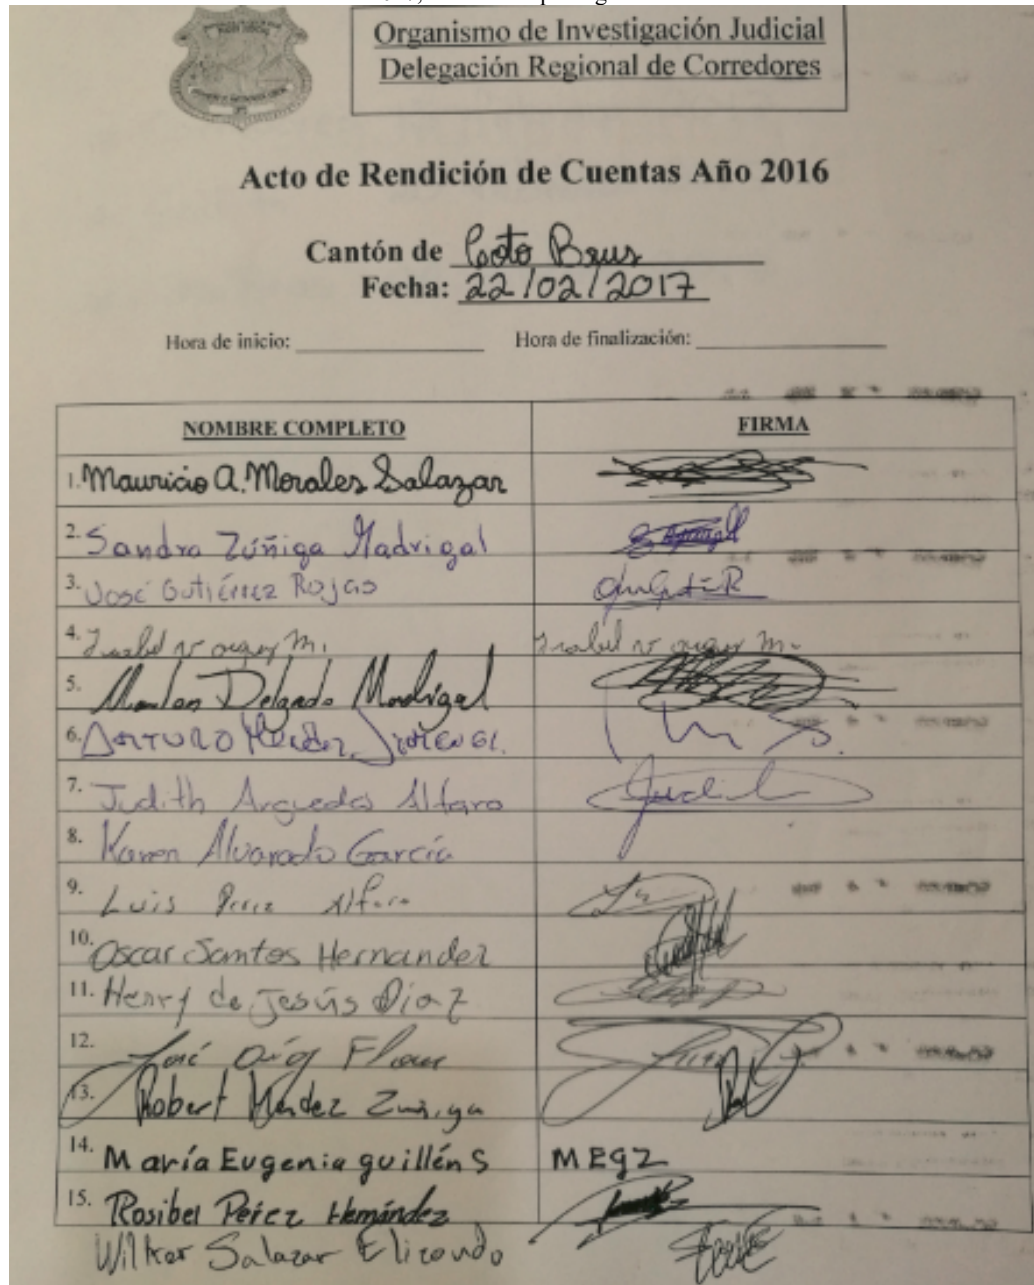 Organismo de Investigación Judicial
Delegación Regional de Corredores
Acto de Rendición de Cuentas Año 2016
Cantón de Coto Brus
Fecha: 22/02/2017
Hora de inicio: Hora de finalización:
NOMBRE COMPLETO FIRMA
1. Mauricio A. Morales Salazar
2. Sandra Zúñiga Madrigal
3. José Gutiérrez Rojas
4. Isabel M. Isabel M.
5. Marlon Delgado Madrigal
6. Arturo
7. Judith Arguedas Alfaro Judith
8. Karen Alvarado García
9. Luis Perez Alfaro
10. Oscar Santos Hernandez
11. Henry de Jesús Díaz
12. José
13. Robert Mendez Zuñiga
14. María Eugenia guillén S MEGZ
15. Rosibel Pérez Hernández
Wilker Salazar Elizondo